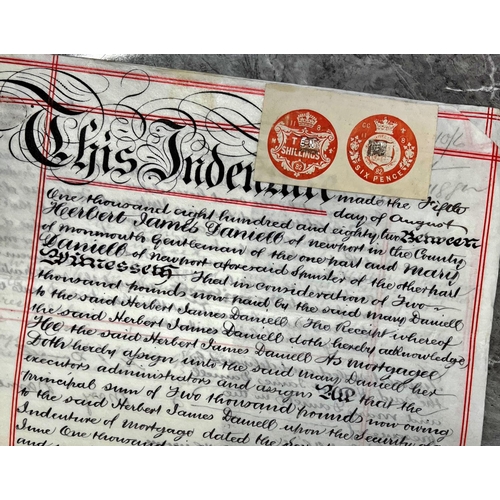 This Indenture made the Fifth
day of August
One thousand eight hundred and eighty two Between
Herbert James Daniell of Newport in the County
of Monmouth Gentleman of the one part and Mary
Daniell of Newport aforesaid Spinster of the other part
Witnesseth that in consideration of Two
thousand pounds now paid by the said Mary Daniell
to the said Herbert James Daniell (the Receipt whereof
the said Herbert James Daniell doth hereby acknowledge)
He the said Herbert James Daniell As Mortgagee
Doth hereby assign unto the said Mary Daniell her
executors administrators and assigns All that the
principal sum of Two thousand pounds now owing
to the said Herbert James Daniell upon the Security of
Indenture of Mortgage dated the
June One thousand
TEN
SHILLINGS
82
SIX PENCE
82